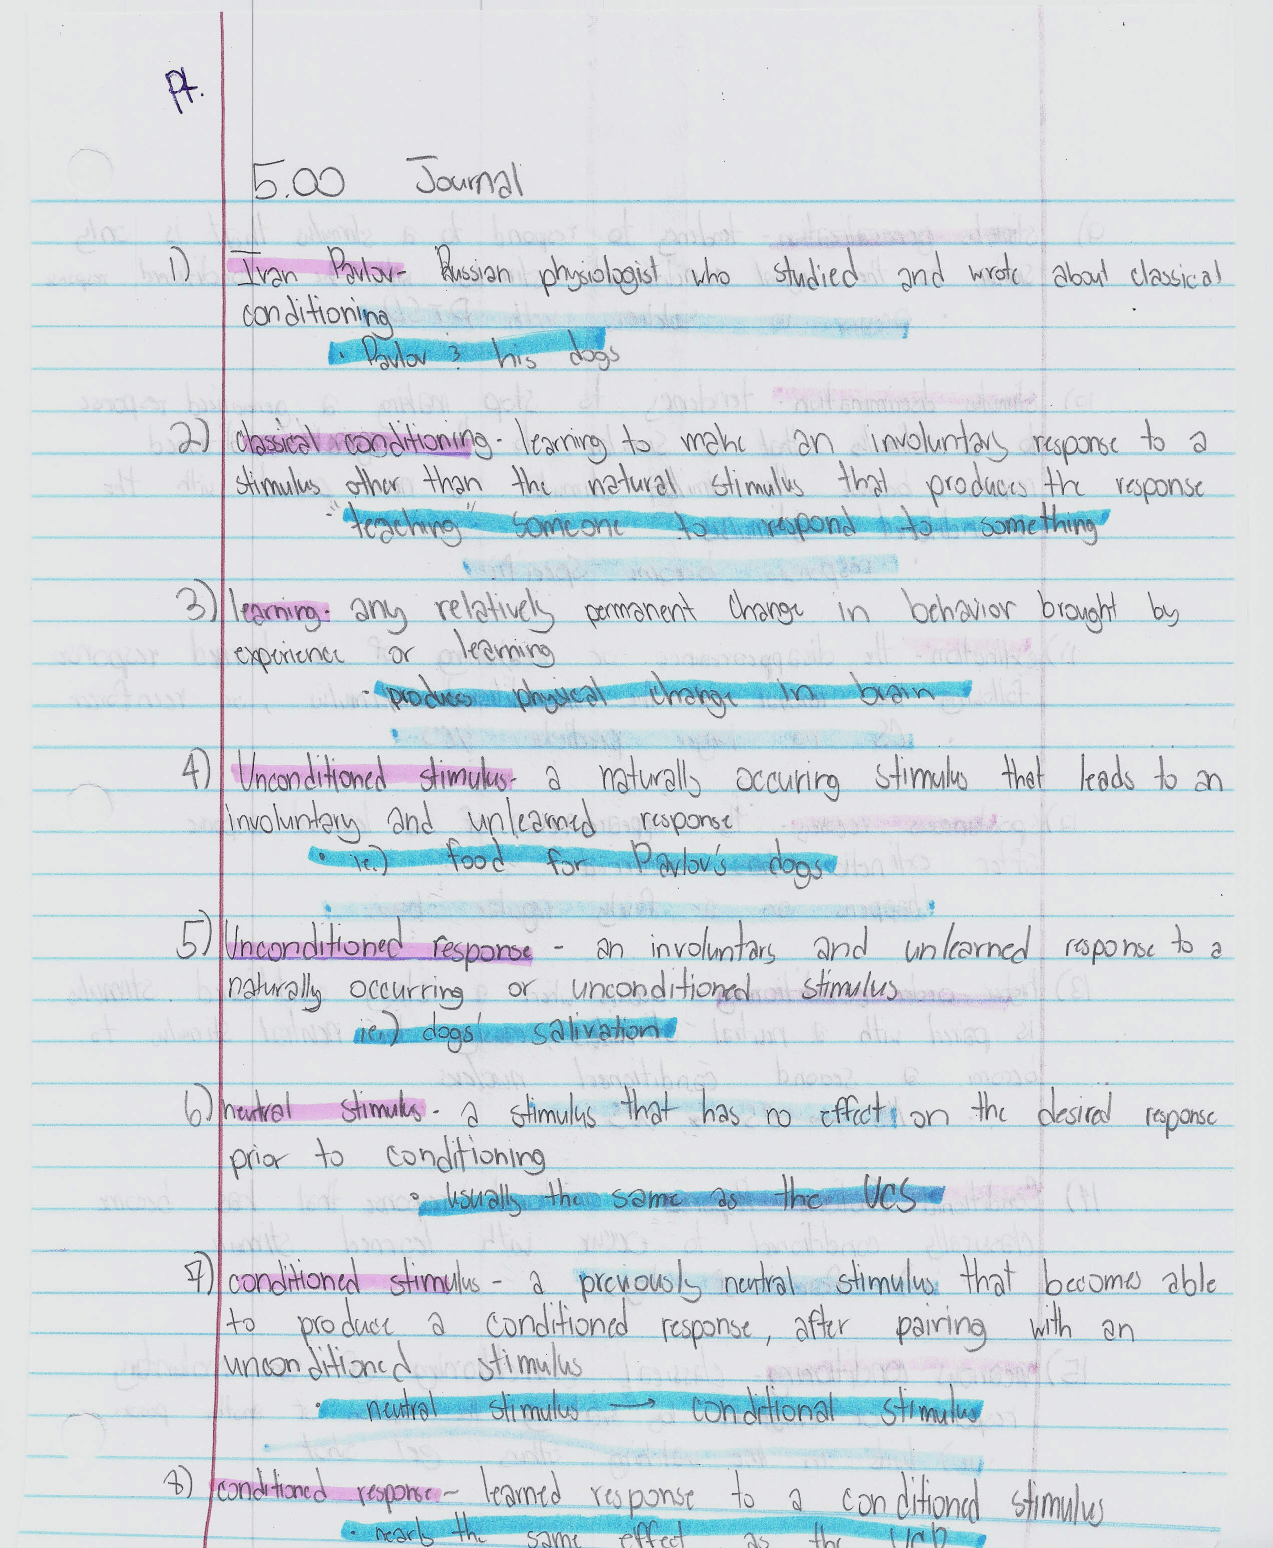 Pt.
5.00 Journal
1) Ivan Pavlov- Russian physiologist who studied and wrote about classical
conditioning
· Pavlov & his dogs
2) classical conditioning - learning to make an involuntary response to a
stimulus other than the natural stimulus that produces the response
· "teaching" someone to respond to something
3) learning- any relatively permanent change in behavior brought by
experience or learning
· produces physical change in brain
4) Unconditioned stimulus- a naturally occuring stimulus that leads to an
involuntary and unlearned response
· ie.) food for Pavlov's dogs
5) Unconditioned response - an involuntary and unlearned response to a
naturally occurring or unconditioned stimulus
ie.) dogs' salivation
6) neutral stimulus - a stimulus that has no effect on the desired response
prior to conditioning
· usually the same as the UCS
7) conditioned stimulus - a previously neutral stimulus that becomes able
to produce a conditioned response, after pairing with an
unconditioned stimulus
· neutral stimulus → conditional stimulus
8) conditioned response - learned response to a conditioned stimulus
· nearly the same effect as the UCR